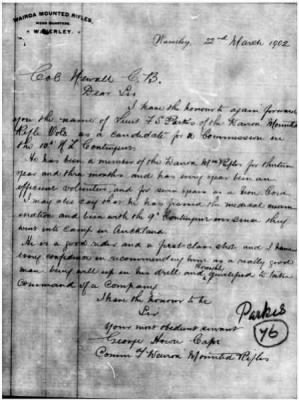 WAIROA MOUNTED RIFLES,
HEAD QUARTERS
WAVERLEY.
Waverley, 22nd March 1902
Col Newall C.B.
Dear Sir
I have the honour to again forward
you the name of Lieut F S Parkes of the Wairoa Mounted
Rifle Vols as a candidate for a Commission on
the 10th N Z Contingent.
He has been a member of the Wairoa Mtd Rifles for thirteen
years and three months and has every year been an
efficient volunteer, and for seven years as a Non Com.
I may also say that he has passed the medical exam-
ination and been with the 9th Contingent ever since they
went into camp in Auckland.
He is a good rider and a first class shot and I have
every confidence in recommending him as a really good
man being well up in his drill and qualified to take
Command of a Company
I have the honour to be
Sir
Your most obedient servant
George Howe Capt
Comm'd'g Wairoa Mounted Rifles
Parkes
76